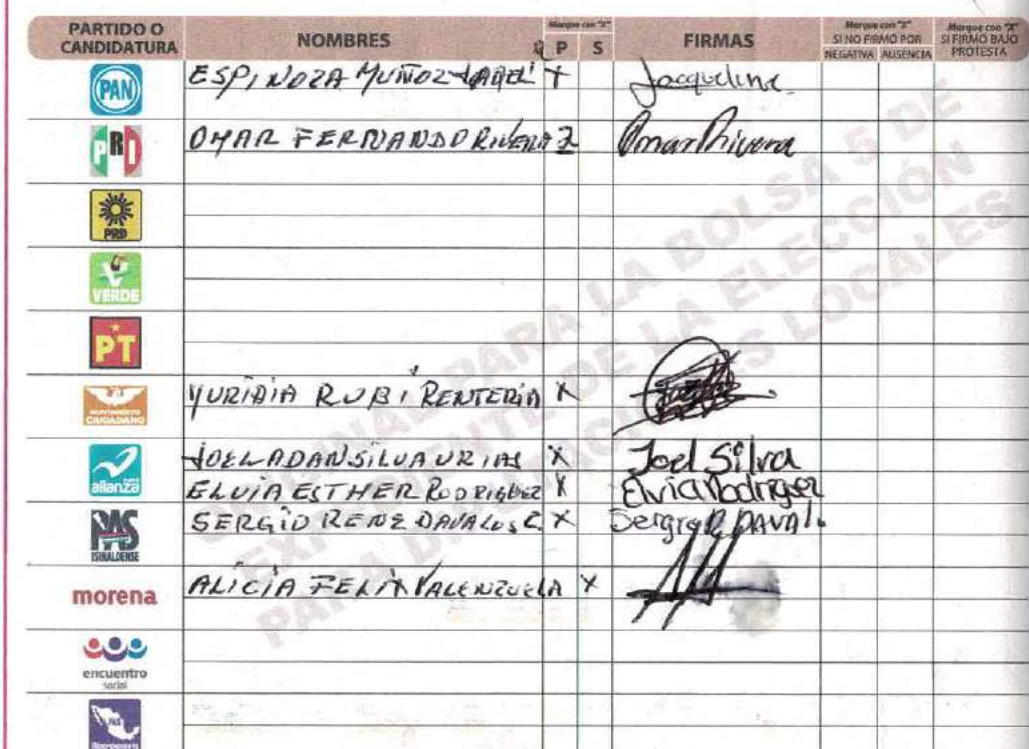 PARTIDO O CANDIDATURA NOMBRES Marque con "X" P S FIRMAS Marque con "X" SI NO FIRMÓ POR NEGATIVA AUSENCIA Marque con "X" SI FIRMÓ BAJO PROTESTA
PAN ESPINOZA MUÑOZ Jacqueline
PRI OMAR FERNANDO RIVERA Omar Rivera
PRD
VERDE
PT
MOVIMIENTO CIUDADANO YURIDIA RUBI RENTERIA X
alianza JOEL ADAN SILVA URIAS X Joel Silva
ELVIA ESTHER RODRIGUEZ X Elvia Rodriguez
PAS SINALOENSE SERGIO RENE DAVALOS C. X Sergio R DAVAL.
morena ALICIA FELIX VALENZUELA X
encuentro social
PAIS
ORIGINAL PARA LA BOLSA 5 DE
EXPEDIENTE DE LA ELECCIÓN
PARA DIPUTACIONES LOCALES